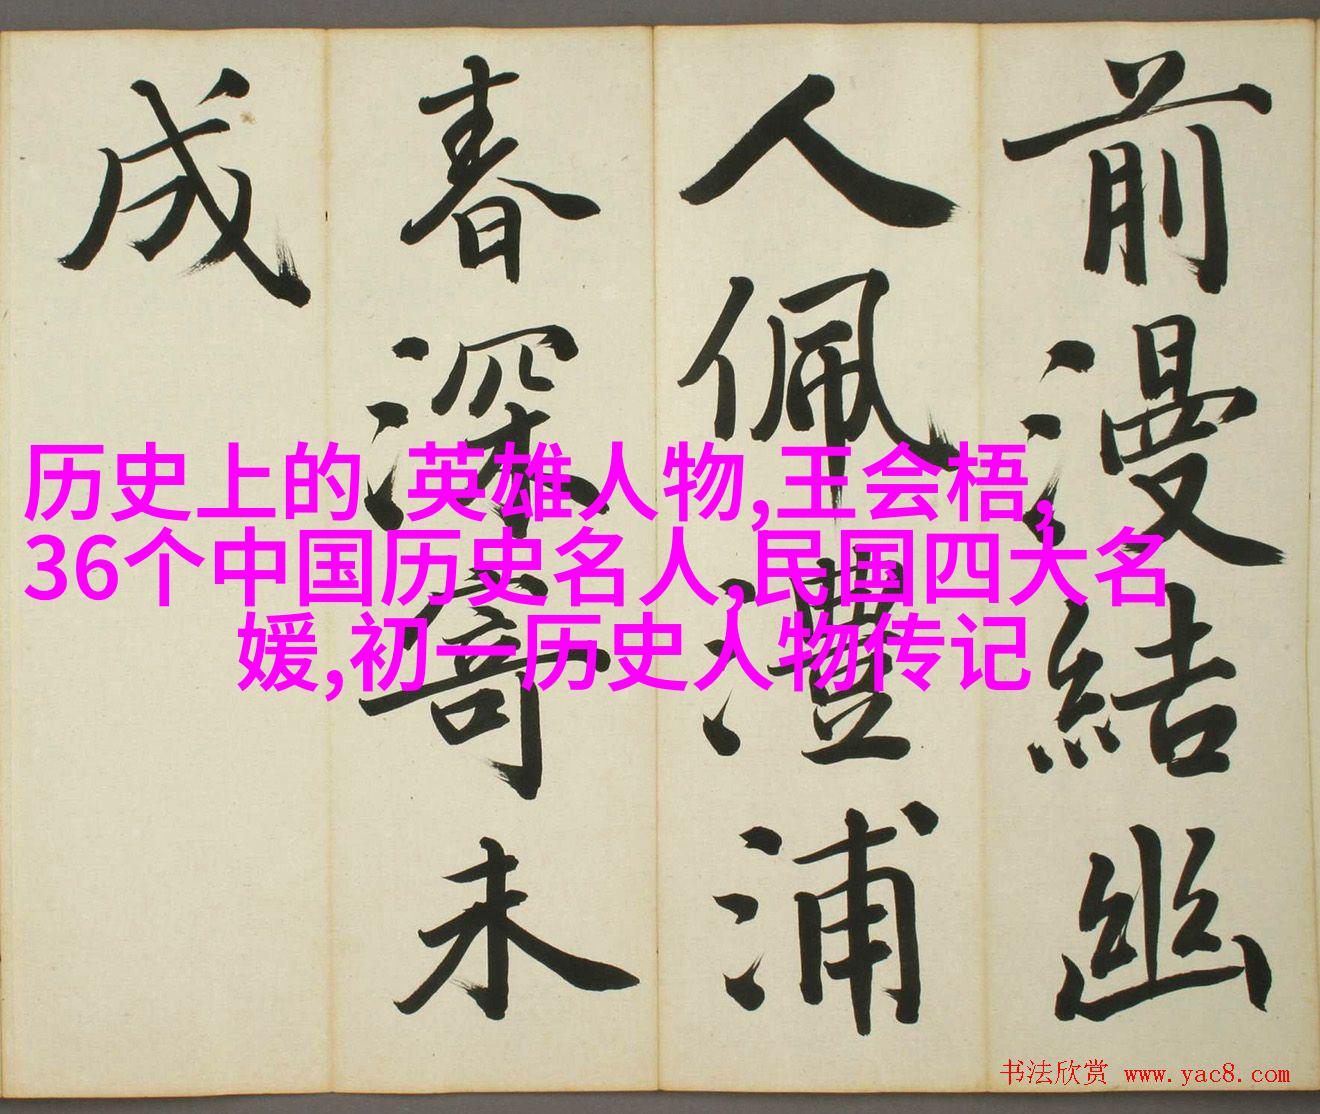 前漫結幽
人佩澧浦
春深寄未
成
历史上的 英雄人物,王会梧,
36个中国历史名人,民国四大名
媛,初一历史人物传记
书法欣赏 www.yac8.com